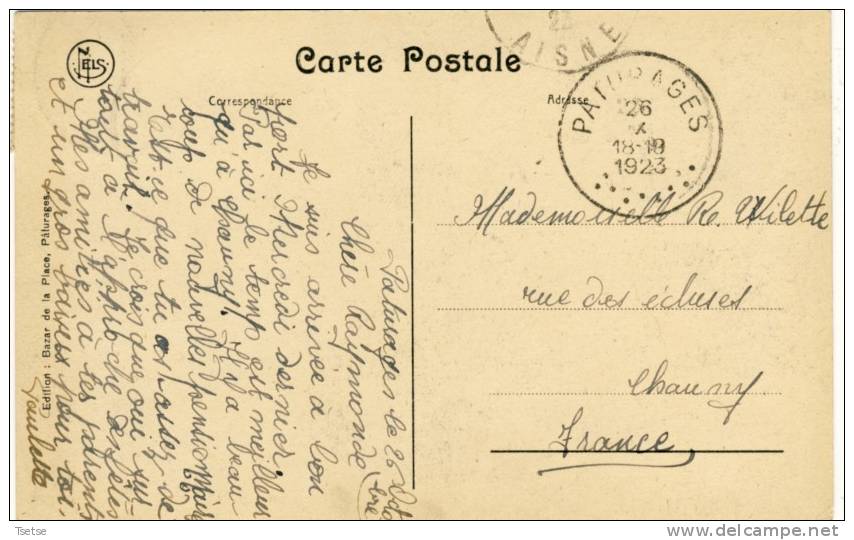 Carte Postale
Correspondance
Adresse
NELS
23
AISNE
PATURAGES
26
X
18-19
1923
Edition : Bazar de la Place, Pâturages.
Paturages le 26 Octo
bre
Chère Raymonde
Je suis arrivée à bon
port Mercredi dernier.
Par ici le temps est meilleur
qu'à Chauny. Il y a beau-
coup de nouvelles pensionnaires
est-ce que tu as assez de
travail. Je crois que oui sur-
tout à l'approche des fêtes
Mes amitiés à tes parents
et un gros baiser pour toi.
Paulette
Mademoiselle R. Vilette
rue des écluses
Chauny
France
Tsetse
www.delcampe.net